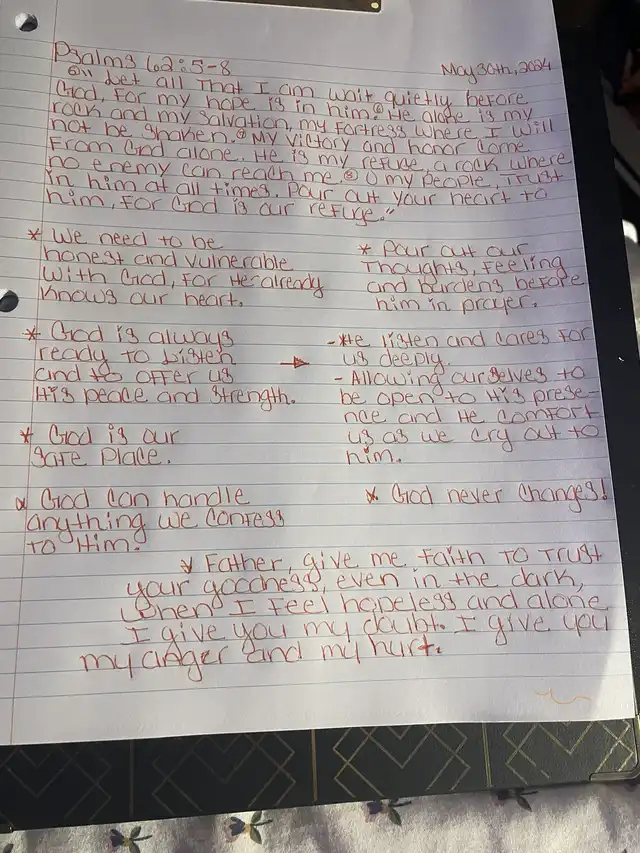 Psalms 62:5-8
May 30th, 2024
(5)" Let all That I am wait quietly before
God, For my hope is in him. (6) He alone is my
rock and my salvation, my fortress where I will
not be shaken. (7) My victory and honor come
From God alone. He is my refuge, a rock where
no enemy can reach me. (8) O my people, Trust
in him at all times. Pour out your heart to
him, For God is our refuge."
* We need to be
honest and vulnerable
With God, For He already
Knows our heart.
* Pour out our
Thoughts, Feeling
and burdens before
him in prayer.
* God is always
ready to Listen →
and to offer us
His peace and strength.
- He listen and cares for
us deeply.
- Allowing ourselves to
be open to His prese-
nce and He comfort
us as we cry out to
him.
* God is our
Safe Place.
* God can handle
anything we confess
To Him.
* God never Changes!
* Father, give me Faith To Trust
your goodness, even in the dark,
When I Feel hopeless and alone
I give you my doubt. I give you
my anger and my hurt.